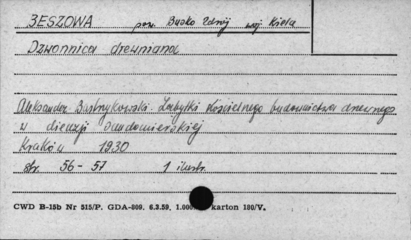 BESZOWA pow. Busko Zdrój woj Kiela
Dzwonnica drewniana
Aleksander Bastrzykowski. Zabytki kościelnego budownictwa drewnego
w diecezji sandomierskiej
Kraków 1930
str. 56-57 1 ilustr.
CWD B-15b Nr 515/P. GDA-809. 6.3.59. 1.000 karton 180/V.